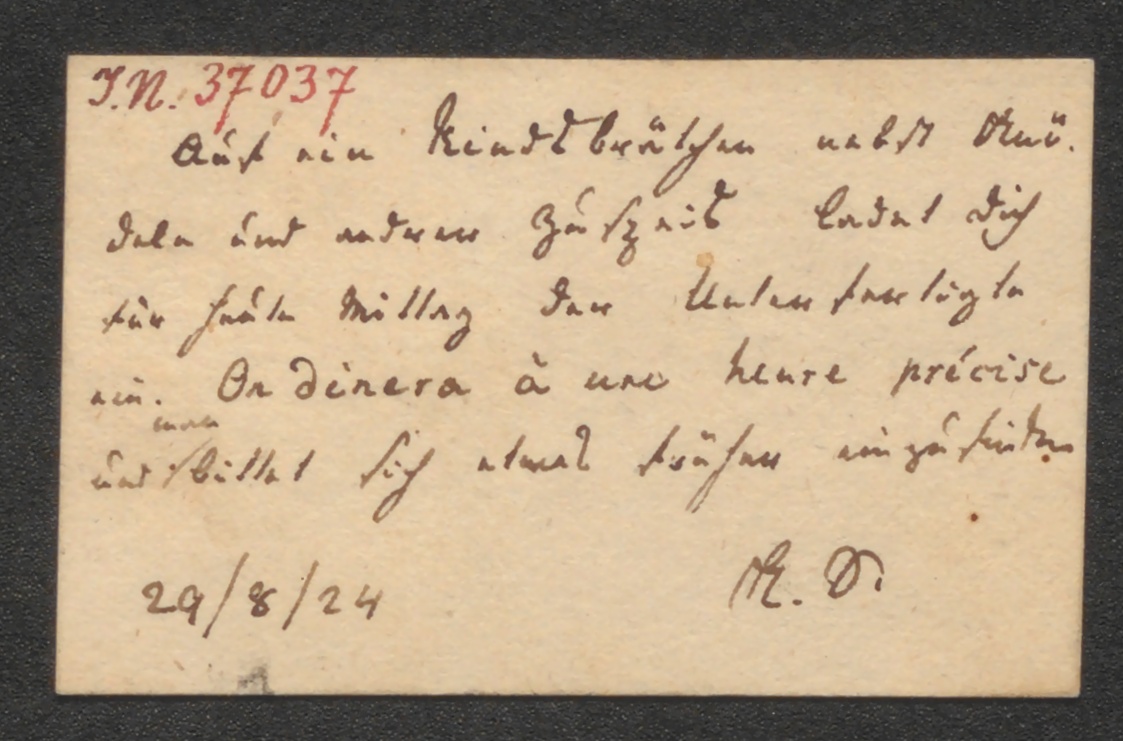 I.N. 37037
Auf ein Rindsbrätchen nebst Knö.
deln und andrer Zuspeis ladet Dich
für heute Mittag der Unterfertigte
ein. On dinera à une heure précise
man
und bittet sich etwas früher einzufinden
29/8/24